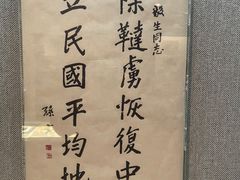 毅生同志
除韃虜恢復中
立民國平均地
孫